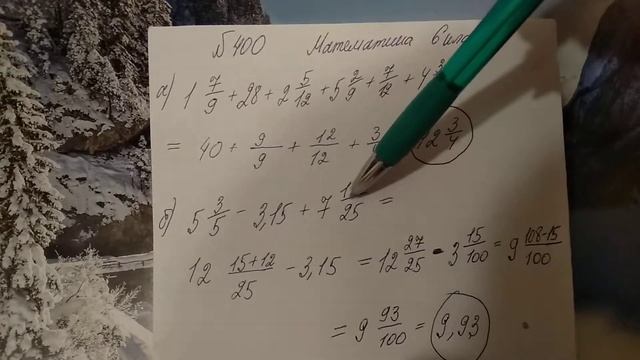 № 400 Математика 6
а) 1 7/9 + 28 + 2 5/12 + 5 2/9 + 7/12 + 4
= 40 + 9/9 + 12/12 + 3/ 42 3/4
б) 5 3/5 - 3,15 + 7 /25 =
12 15+12/25 - 3,15 = 12 27/25 - 3 15/100 = 9 108-15/100
= 9 93/100 = 9,93